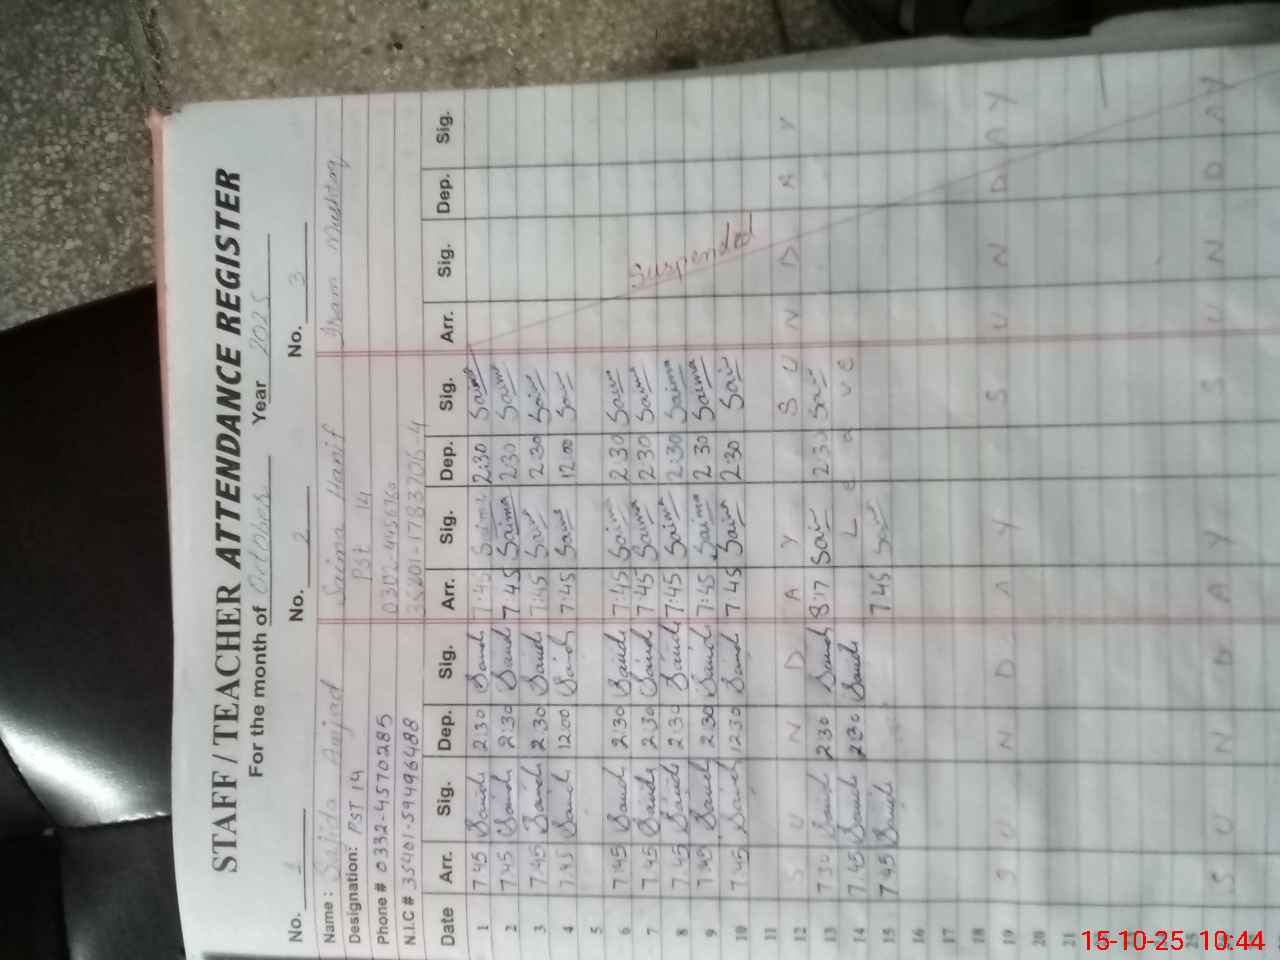 STAFF / TEACHER ATTENDANCE REGISTER
For the month of October Year 2025
No. 1 No. 2 No. 3
Name : Sajida Amjad Saima Hanif Iram Mushtaq
Designation: PST 14 PST 14
Phone # 0332-4570285
N.I.C # 35401-5949648-8
Date Arr. Sig. Dep. Sig. Arr. Sig. Dep. Sig. Arr. Sig. Dep. Sig.
1 7:45 2:30 7:45 Saima 2:30 Saima
2 7:45 2:30 7:45 Saima 2:30 Saima
3 7:45 2:30 7:45 2:30
4 7:45 12:00 7:45 12:00
5
6 7:45 2:30 7:45 Saima 2:30
7 7:45 2:30 7:45 Saima 2:30 Saima
8 7:45 2:30 7:45 Saima 2:30 Saima
9 7:45 2:30 7:45 Saima 2:30 Saima
10 7:45 12:30 7:45 Saima 2:30
Suspended
11
12 S U N D A Y S U N D A Y
13 7:30 2:30 8:17 2:30
14 7:45 2:30 L e a v e
15 7:45 7:45
16
17
18
19 S U N D A Y S U N D A Y
20
21
S U N D A Y S U N D A Y
15-10-25 10:44